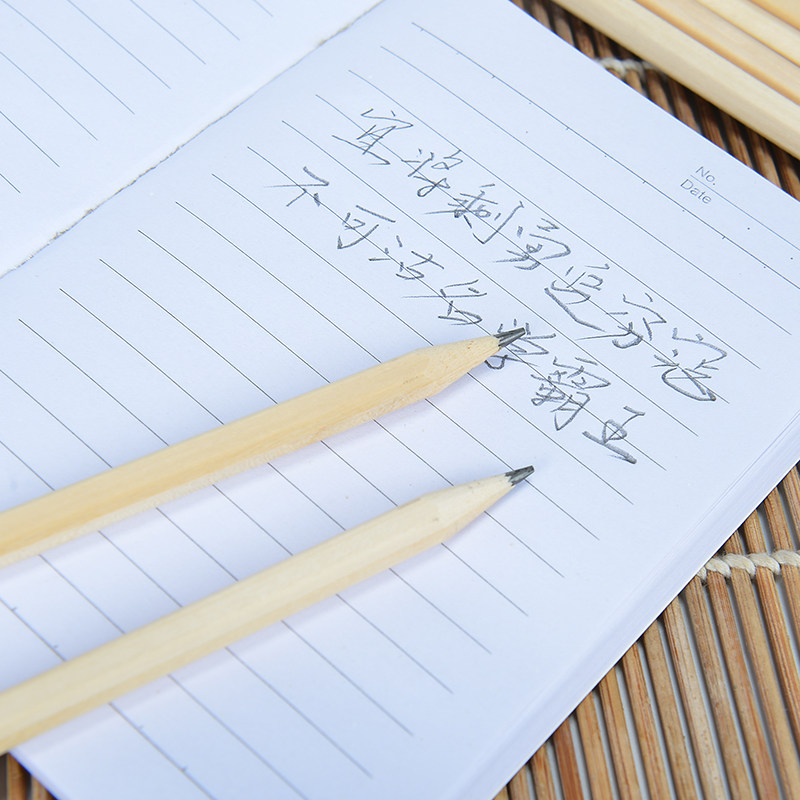 No.
Date
宜将剩勇追穷寇
不可沽名学霸王